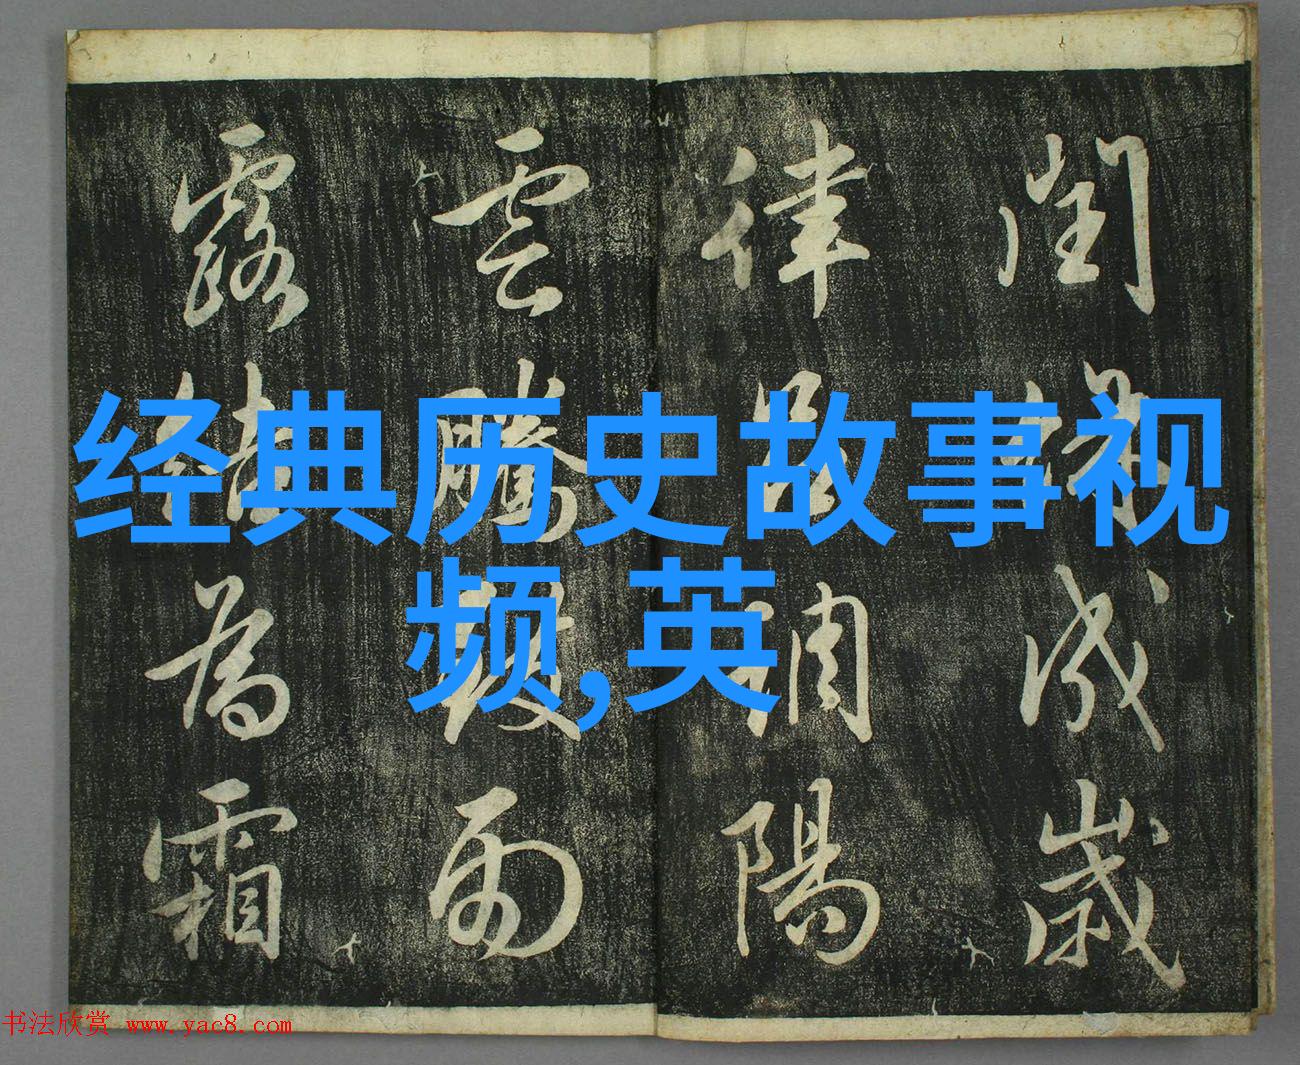 閏餘成歲
律呂調陽
雲騰致雨
露結為霜
经典历史故事视
频,英
书法欣赏 www.yac8.com